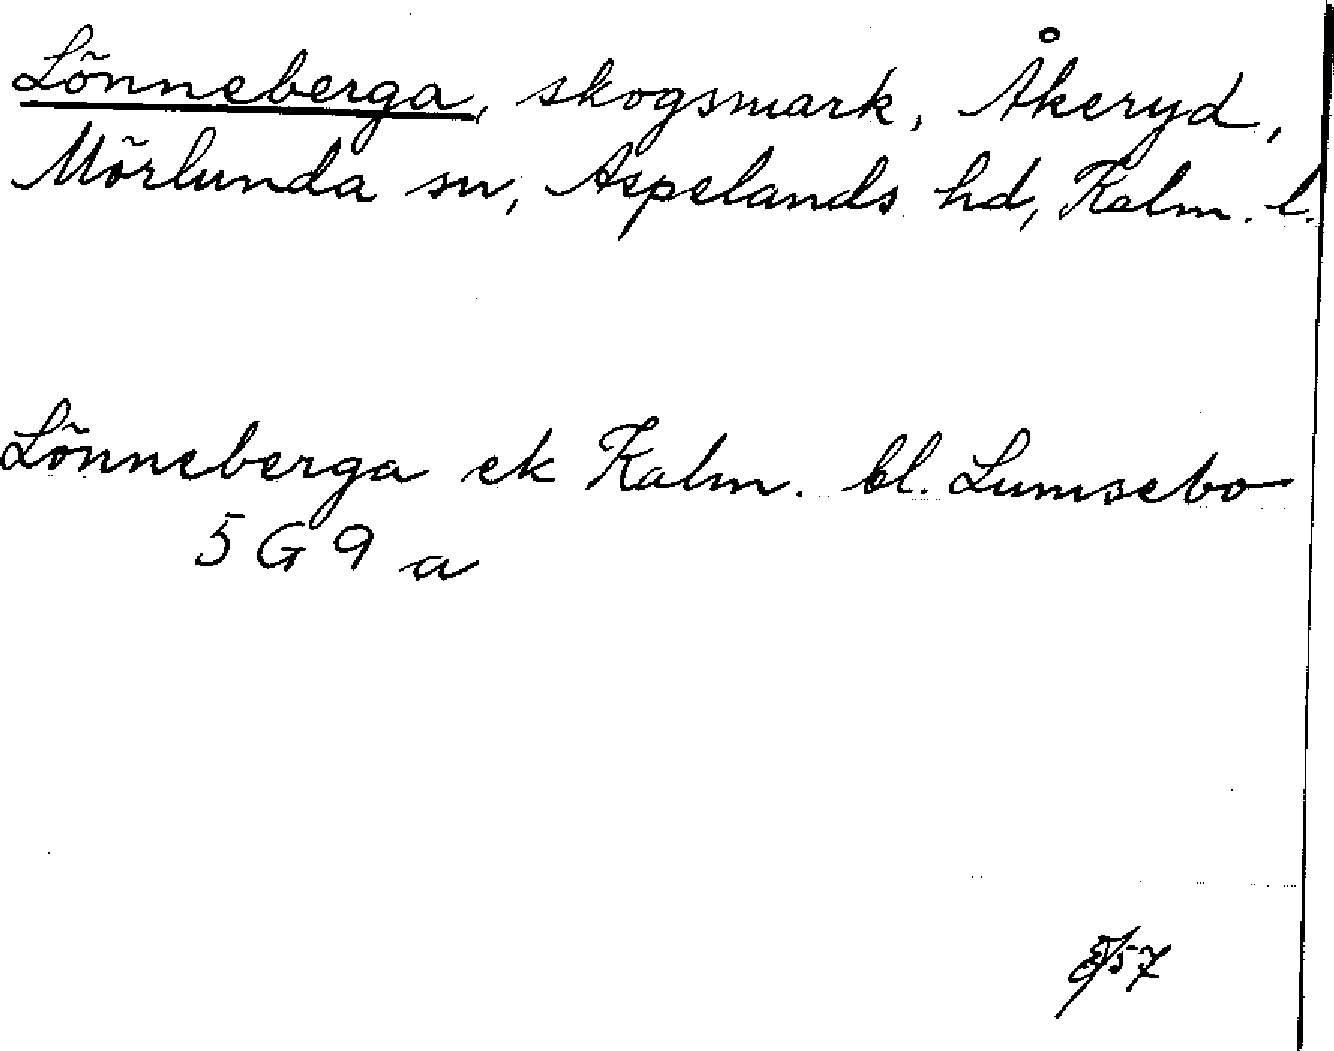 Lönneberga, skogsmark, Åkeryd,
Mörlunda sn, Aspelands hd, Kalm. l.
Lönneberga ek Kalm. bl. Lumsebo
5 G 9 a
57